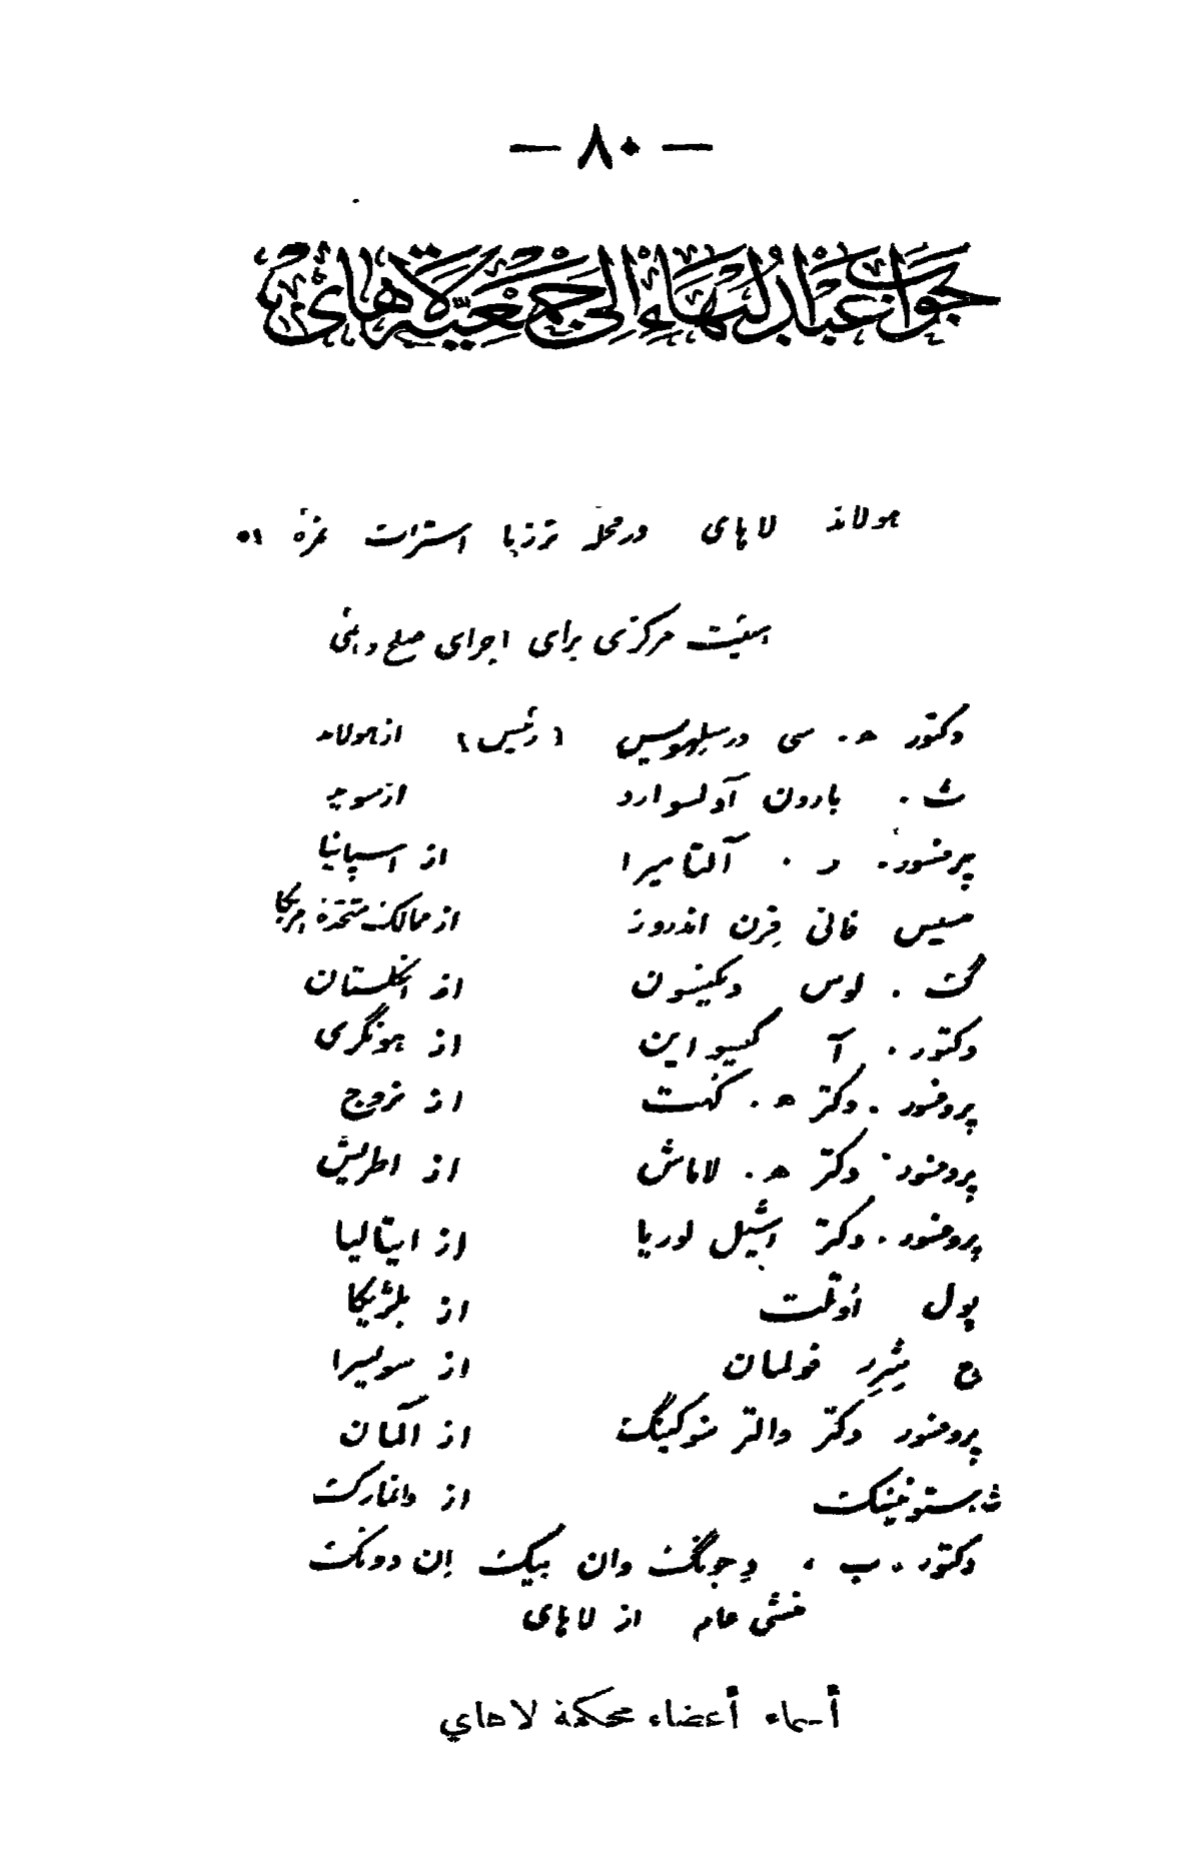 — ٨٠ —
جواب عبدالبهاء الى جمعية لاهاي
هولاند لاهای در محله ترزیا استرات نمره ٥١
هیئت مرکزی برای اجرای صلح دائمی
دکتور ه. سی درسلهویس (رئیس) از هولاند
ث. بارون آدلسوارد از سوید
پرفسور. ر. آلتامیرا از اسپانیا
مسیس فانی فرن اندروز از ممالک متحده امریکا
گ. لوس دیکینسون از انگلستان
دکتور. آ گیسواین از هونگری
پروفسور. دکتر ه. کهت از نروج
پروفسور. دکتر ه. لاماش از اطریش
پروفسور. دکتر اشیل لوریا از ایتالیا
پول اوتلت از بلژیکا
ع شرر فولمان از سویسرا
پروفسور دکتر والتر شوکینگ از آلمان
ث. ستونینک از دانمارک
دکتور. ب. دجونگ وان بیک ان دونک
منشی عام از لاهای
أسماء أعضاء محكمة لاهاي